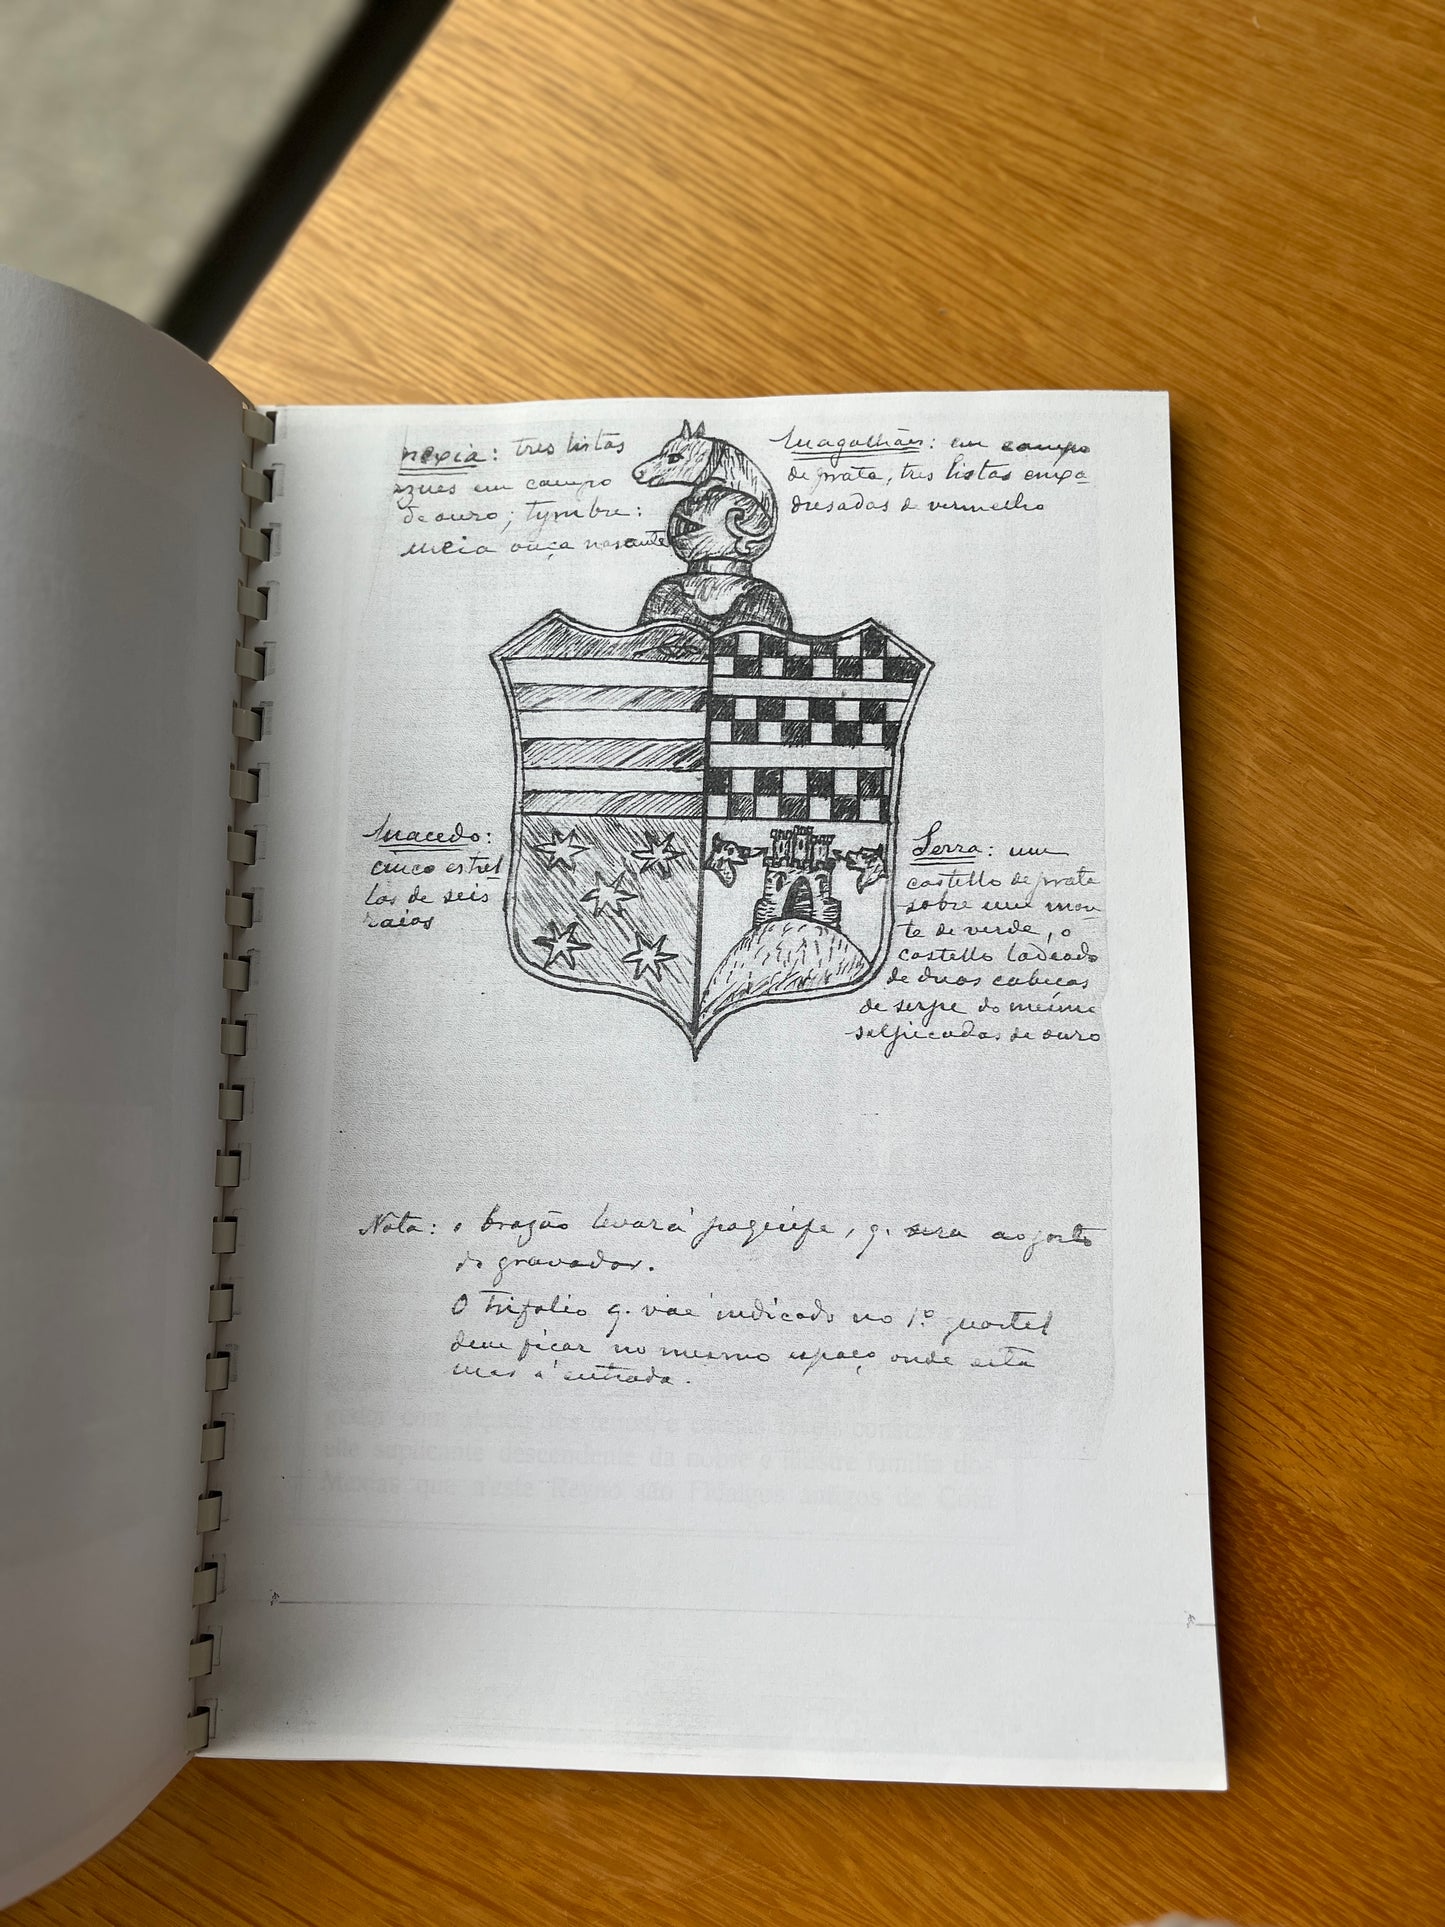 Mexia: tres listas
azues em campo
de ouro; tymbre:
meia onça nascente
Magalhães: em campo
de prata, tres listas enxa
dresadas de vermelho
Macedo:
cinco estrel
las de seis
raios
Serra: um
castello de prata
sobre um mon
te de verde, o
castello ladeado
de duas cabeças
de serpe do mesmo
salpicadas de ouro
Nota: o brazão levará paquife, q. sera ao gosto
do gravador.
O trifolio q. vae indicado no 1º quartel
deve ficar no mesmo espaço onde esta
mas á entrada.
elle suplicante descendente da nobre e illustre familia dos
Mexias que n'este Reyno são Fidalgos antigos de Cota